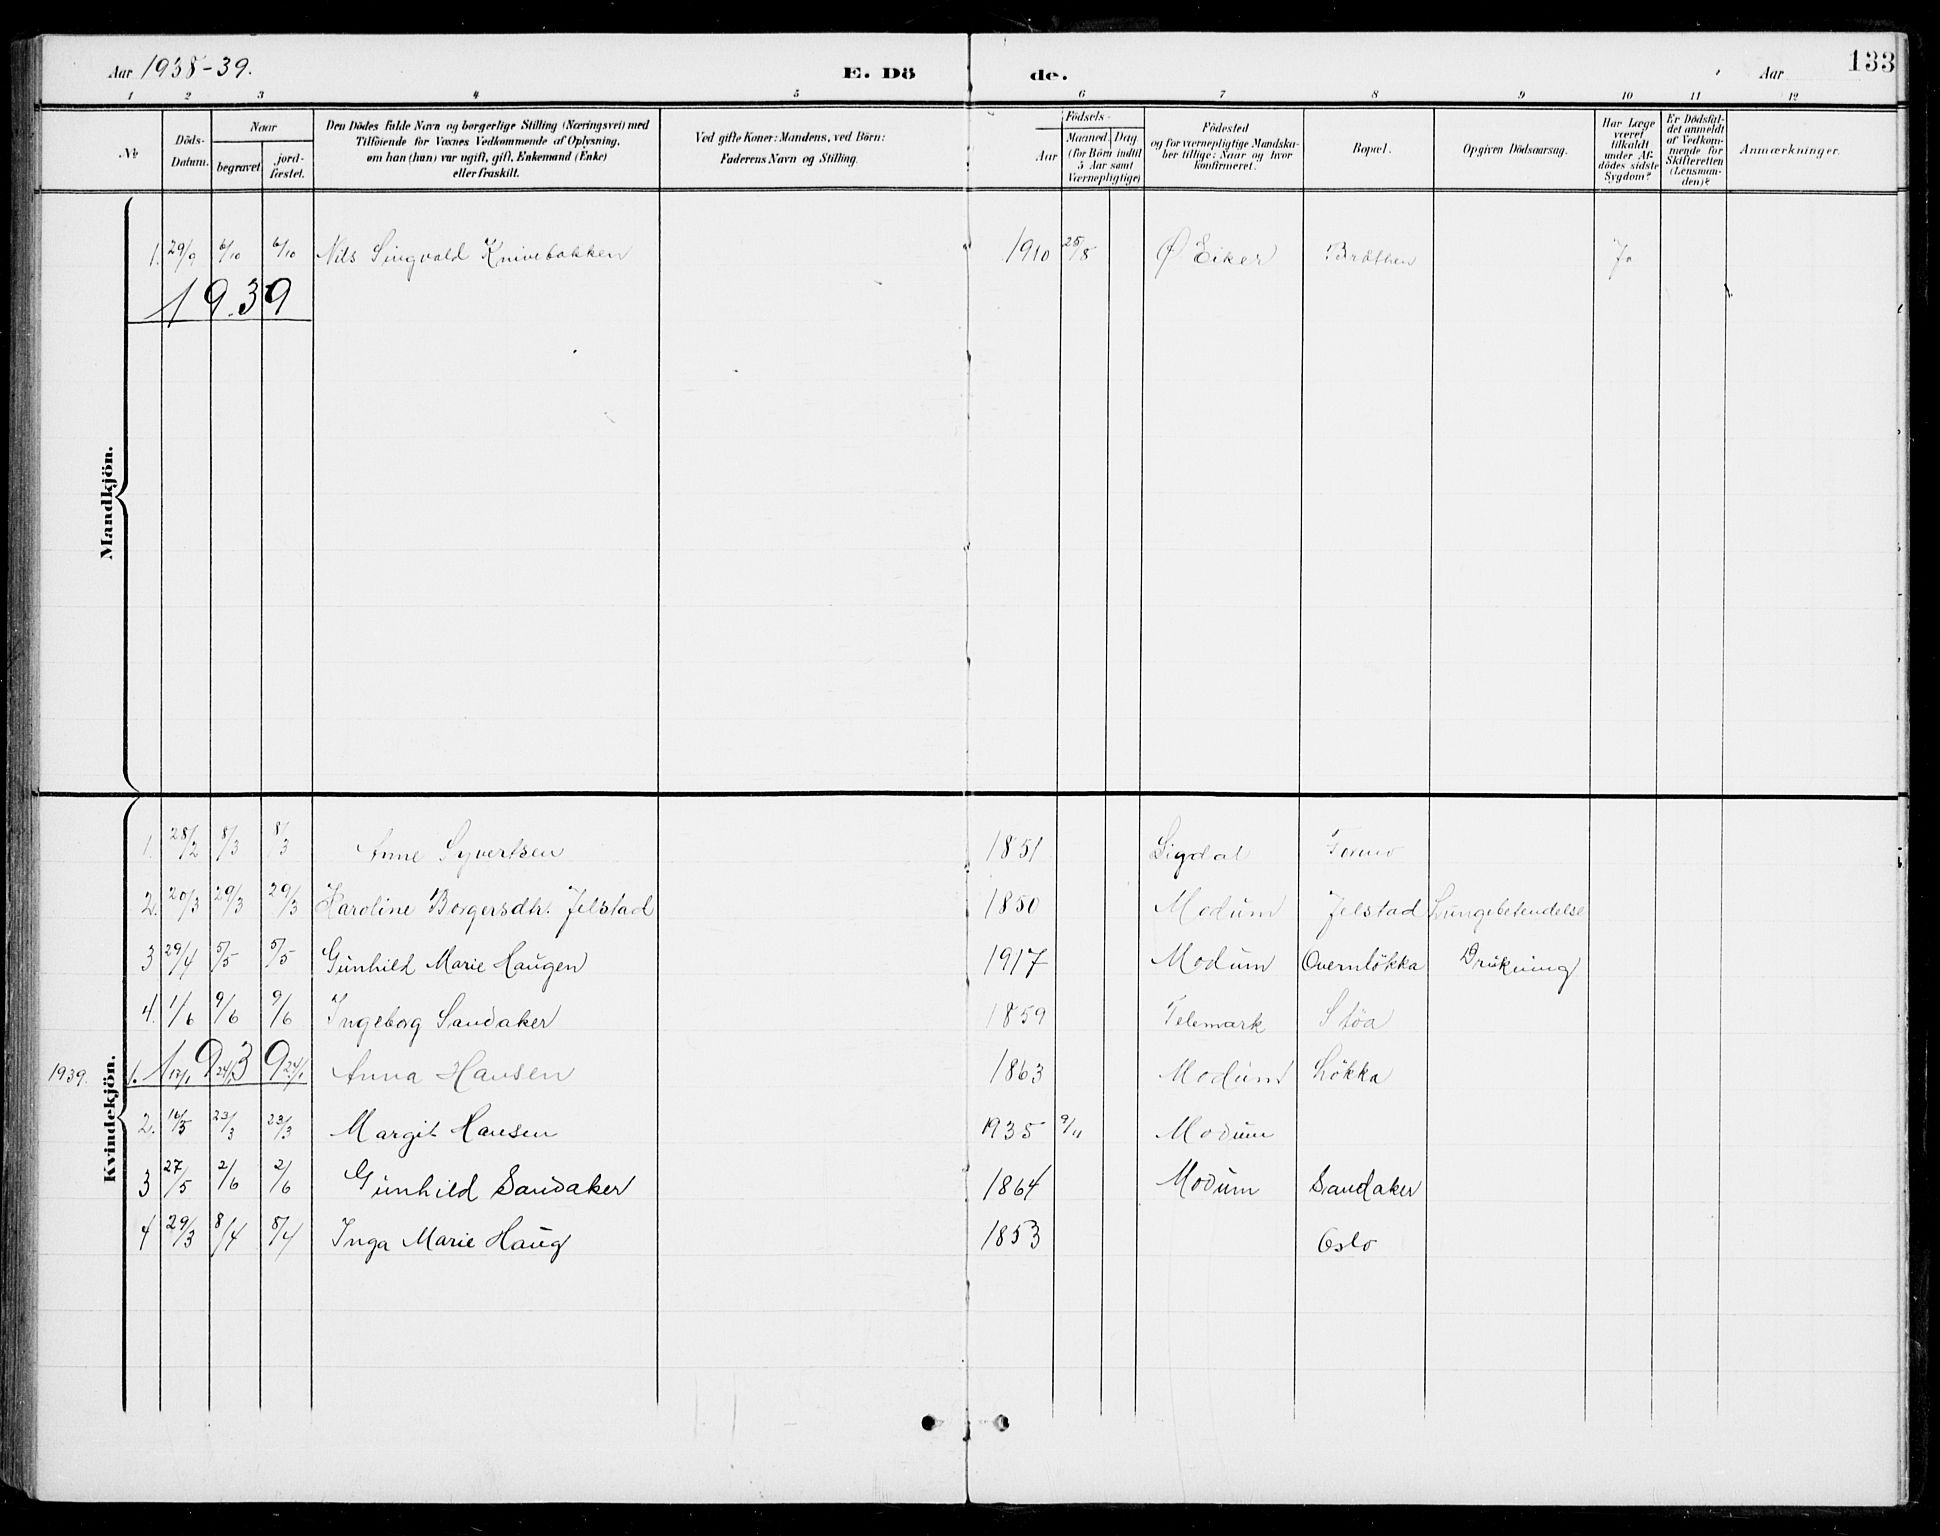 Aar 1938-39. E. Dö de. Aar 133
1 2 3 4 5 6 7 8 9 10 11 12
No
Döds-Datum.
Naar
begravet
jord-fæstet.
Den Dödes fulde Navn og borgerlige Stilling (Næringsvei) med
Tilföiende for Voxnes Vedkommende af Oplysning,
om han (hun) var ugift, gift, Enkemand (Enke)
eller fraskilt.
Ved gifte Koner: Mandens, ved Börn:
Faderens Navn og Stilling.
Födsels-
Aar
Maaned. Dag
(for Börn indtil
5 Aar samt
Værnepligtige)
Födested
og for værnepligtige Mandska-
ber tillige: Naar og hvor
konfirmeret.
Bopæl.
Opgiven Dödsaarsag.
Har Læge
været
tilkaldt
under Af-
dödes sidste
Sygdom?
Er Dödsfal-
det anmeldt
af Vedkom-
mende for
Skifteretten
(Lensman-
den)?
Anmærkninger.
Mandkjön.
1. 29/9 6/10 6/10 Nils Singvald Knivebakken 1910 25/8 Ø Eiker Bråthen Ja
1939
Kvindekjön.
1. 28/2 8/3 8/3 Anne Syvertsen 1851 Sigdal
2. 20/3 29/3 29/3 Karoline Borgersdtr. Jelstad 1850 Modum Jelstad Lungebetendelse
3 29/4 5/5 5/5 Gunhild Marie Haugen 1917 Modum Overnlökka Drukning
4. 1/6 9/6 9/6 Ingeborg Sandaker 1859 Telemark Stöa
1939
1939. 1. 24/1 24/1 Anna Hansen 1863 Modum Lökka
2. 16/3 23/3 23/3 Margit Hansen 1935 9/11 Modum
3 27/5 2/6 2/6 Gunhild Sandaker 1864 Modum Sandaker
4 29/3 8/4 8/4 Inga Marie Haug 1853 Oslo